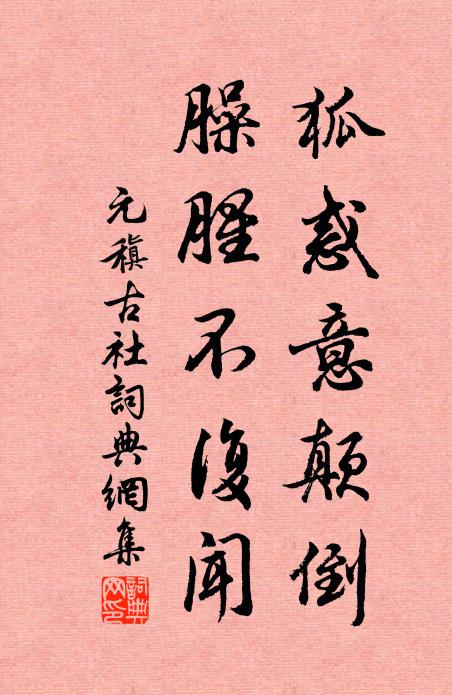 狐惑意颠倒
臊腥不復闻
元稹古社詞典網集
詞典網印